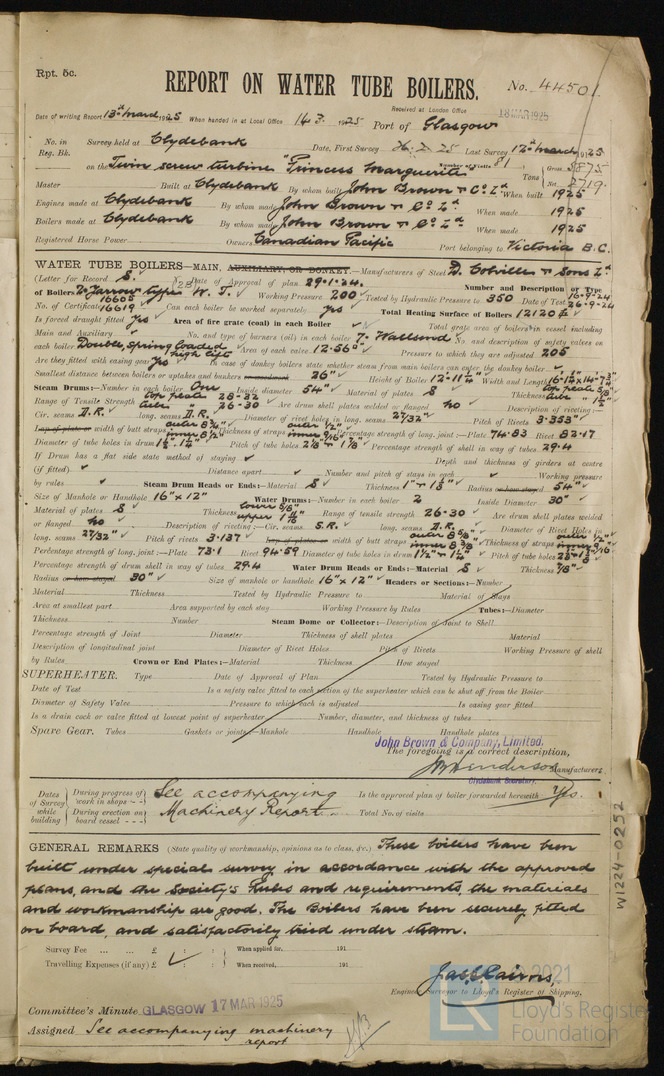 Rpt. 5c.
REPORT ON WATER TUBE BOILERS.
No. 44501.
Received at London Office 18 MAR 1925
Date of writing Report 13th March 1925 When handed in at Local Office 14.3.1925 Port of Glasgow
No. in Reg. Bk. Survey held at Clydebank Date, First Survey Last Survey 12th March 1925
on the Twin screw turbine "Princess Marguerite" Number of Visits 81 Tons Gross 5875 Net 2719
Master Built at Clydebank By whom built John Brown & Co Ld When built 1925
Engines made at Clydebank By whom made John Brown & Co Ld. When made 1925
Boilers made at Clydebank By whom made John Brown & Co Ld When made 1925
Registered Horse Power Owners Canadian Pacific Port belonging to Victoria B.C.
WATER TUBE BOILERS—MAIN, AUXILIARY, OR DONKEY.—Manufacturers of Steel D. Colville & Sons Ld
(Letter for Record S.) Date of Approval of plan 29.1.24. Number and Description or Type
of Boilers Yarrow type W.T. Working Pressure 200 Tested by Hydraulic Pressure to 350 Date of Test 16-9-24 26-9-24
No. of Certificate 16605 16619 Can each boiler be worked separately yes Total Heating Surface of Boilers 12120
Is forced draught fitted yes Area of fire grate (coal) in each Boiler Total grate area of boilers in vessel including
Main and Auxiliary No. and type of burners (oil) in each boiler 7. Wallsend No. and description of safety valves on
each boiler Double, Spring loaded high lift Area of each valve 12.56 Pressure to which they are adjusted 205
Are they fitted with easing gear yes In case of donkey boilers state whether steam from main boilers can enter the donkey boiler
Smallest distance between boilers or uptakes and bunkers 26" Height of Boiler 12-11 1/4" Width and Length
Steam Drums:—Number in each boiler One Inside diameter 54" Material of plates S Thickness
Range of Tensile Strength top plate 28-32 tube 26-30 Are drum shell plates welded or flanged no Description of riveting:—
Cir. seams D.R. long. seams D.R. Diameter of rivet holes in long. seams 27/32" Pitch of Rivets 3.353"
Lap of plate or width of butt straps Thickness of straps Percentage strength of long. joint:—Plate 74.83 Rivet 82.17
Diameter of tube holes in drum Pitch of tube holes Percentage strength of shell in way of tubes 29.4
If Drum has a flat side state method of staying Depth and thickness of girders at centre
(if fitted). Distance apart Number and pitch of stays in each Working pressure
by rules Steam Drum Heads or Ends:—Material S Thickness Radius or how stayed 54"
Size of Manhole or Handhole 16" x 12" Water Drums:—Number in each boiler 2 Inside Diameter 30"
Material of plates S Thickness lower 5/8" upper Range of tensile strength 26-30 Are drum shell plates welded
or flanged no Description of riveting:—Cir. seams S.R. long. seams D.R. Diameter of Rivet Holes in
long. seams 27/32" Pitch of rivets 3.137 Lap of plates or width of butt straps Thickness of straps
Percentage strength of long. joint:—Plate 73.1 Rivet 94.59 Diameter of tube holes in drum Pitch of tube holes
Percentage strength of drum shell in way of tubes 29.4 Water Drum Heads or Ends:—Material S Thickness 7/8"
Radius or how stayed 30" Size of manhole or handhole 16" x 12" Headers or Sections:—Number
Material Thickness Tested by Hydraulic Pressure to Material of Stays
Area at smallest part Area supported by each stay Working Pressure by Rules Tubes:—Diameter
Thickness Number Steam Dome or Collector:—Description of Joint to Shell
Percentage strength of Joint Diameter Thickness of shell plates Material
Description of longitudinal joint Diameter of Rivet Holes Pitch of Rivets Working Pressure of shell
by Rules Crown or End Plates:—Material Thickness How stayed
SUPERHEATER. Type Date of Approval of Plan Tested by Hydraulic Pressure to
Date of Test Is a safety valve fitted to each section of the superheater which can be shut off from the Boiler
Diameter of Safety Valve Pressure to which each is adjusted Is easing gear fitted
Is a drain cock or valve fitted at lowest point of superheater Number, diameter, and thickness of tubes
Spare Gear. Tubes Gaskets or joints:—Manhole Handhole Handhole plates
John Brown & Company, Limited.
The foregoing is a correct description,
Henderson Manufacturers.
Clydebank Secretary.
Dates of Survey while building During progress of work in shops - - See accompanying Is the approved plan of boiler forwarded herewith Yes.
During erection on board vessel - - - Machinery Report. Total No. of visits
GENERAL REMARKS (State quality of workmanship, opinions as to class, &c.) These boilers have been
built under special survey in accordance with the approved
plans, and the Society's Rules and requirements, the materials
and workmanship are good. The Boilers have been securely fitted
on board, and satisfactorily tried under steam.
Survey Fee ... ... £ : : When applied for, 191
Travelling Expenses (if any) £ : : When received, 191
Jas Cairns,
Engineer Surveyor to Lloyd's Register of Shipping.
Committee's Minute GLASGOW 17 MAR 1925
Assigned See accompanying machinery
report
W1224-0252
2021
Lloyd's Register
Foundation